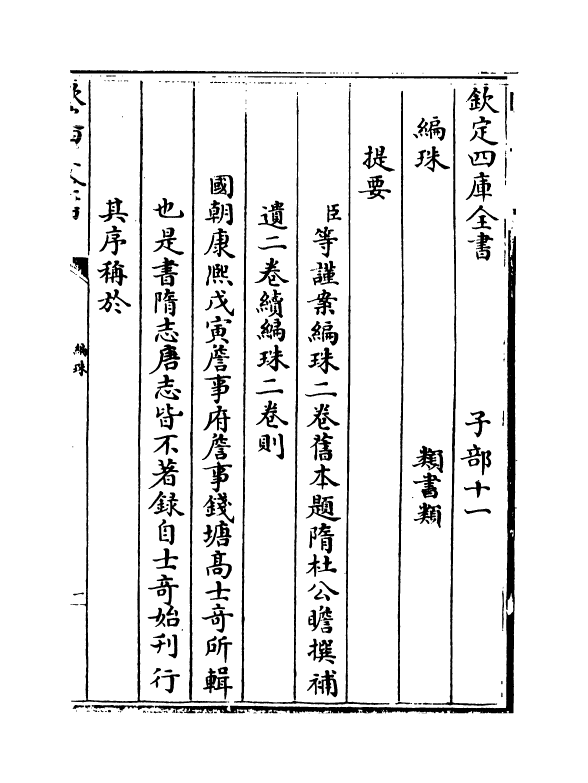 欽定四庫全書　子部十一
編珠　類書類
提要
臣等謹案編珠二卷舊本題隋杜公瞻撰補
遺二卷續編珠二卷則
國朝康熙戊寅詹事府詹事錢塘高士竒所輯
也是書隋志唐志皆不著録自士竒始刊行
其序稱於
編珠